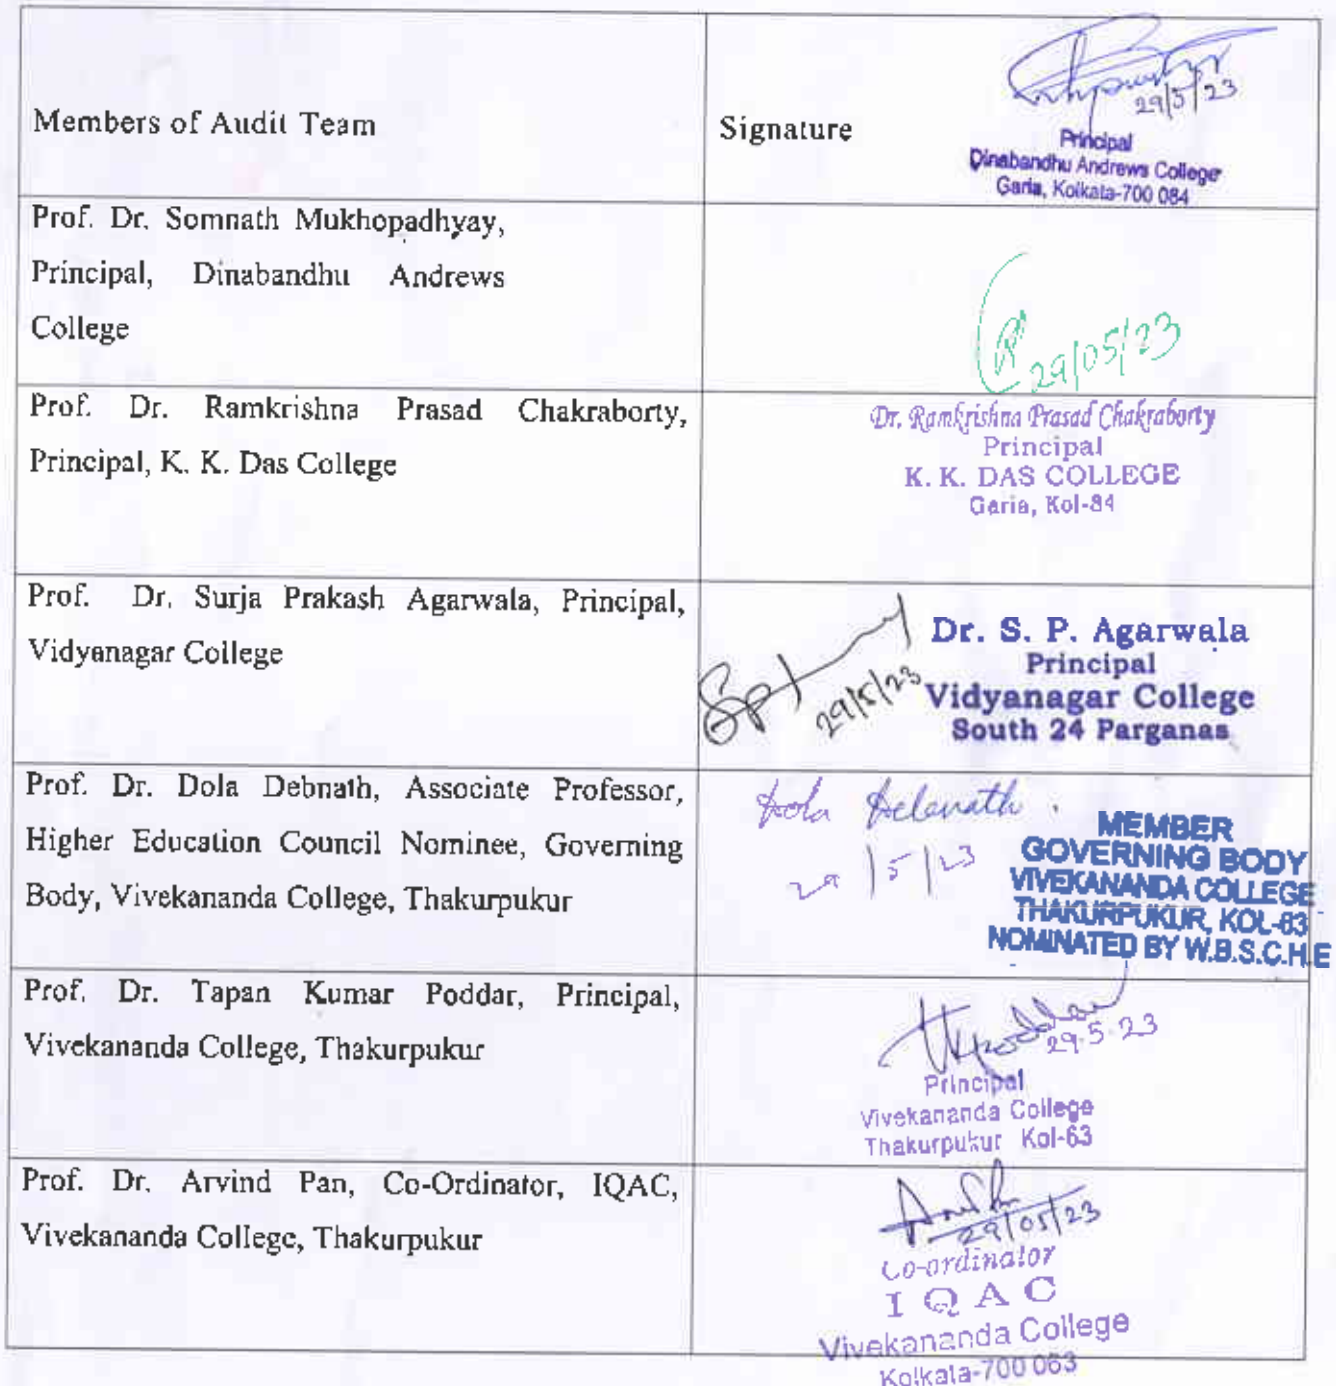 Members of Audit Team
Signature
29/5/23
Principal
Dinabandhu Andrews College
Garia, Kolkata-700 084
Prof. Dr. Somnath Mukhopadhyay,
Principal, Dinabandhu Andrews
College
29/05/23
Prof. Dr. Ramkrishna Prasad Chakraborty,
Principal, K. K. Das College
Dr. Ramkrishna Prasad Chakraborty
Principal
K. K. DAS COLLEGE
Garia, Kol-84
Prof. Dr. Surja Prakash Agarwala, Principal,
Vidyanagar College
29/5/23
Dr. S. P. Agarwala
Principal
Vidyanagar College
South 24 Parganas
Prof. Dr. Dola Debnath, Associate Professor,
Higher Education Council Nominee, Governing
Body, Vivekananda College, Thakurpukur
Dola Debnath.
29/5/23
MEMBER
GOVERNING BODY
VIVEKANANDA COLLEGE
THAKURPUKUR, KOL-63
NOMINATED BY W.B.S.C.H.E
Prof. Dr. Tapan Kumar Poddar, Principal,
Vivekananda College, Thakurpukur
29.5.23
Principal
Vivekananda College
Thakurpukur Kol-63
Prof. Dr. Arvind Pan, Co-Ordinator, IQAC,
Vivekananda College, Thakurpukur
29/05/23
Co-ordinator
I Q A C
Vivekananda College
Kolkata-700 063